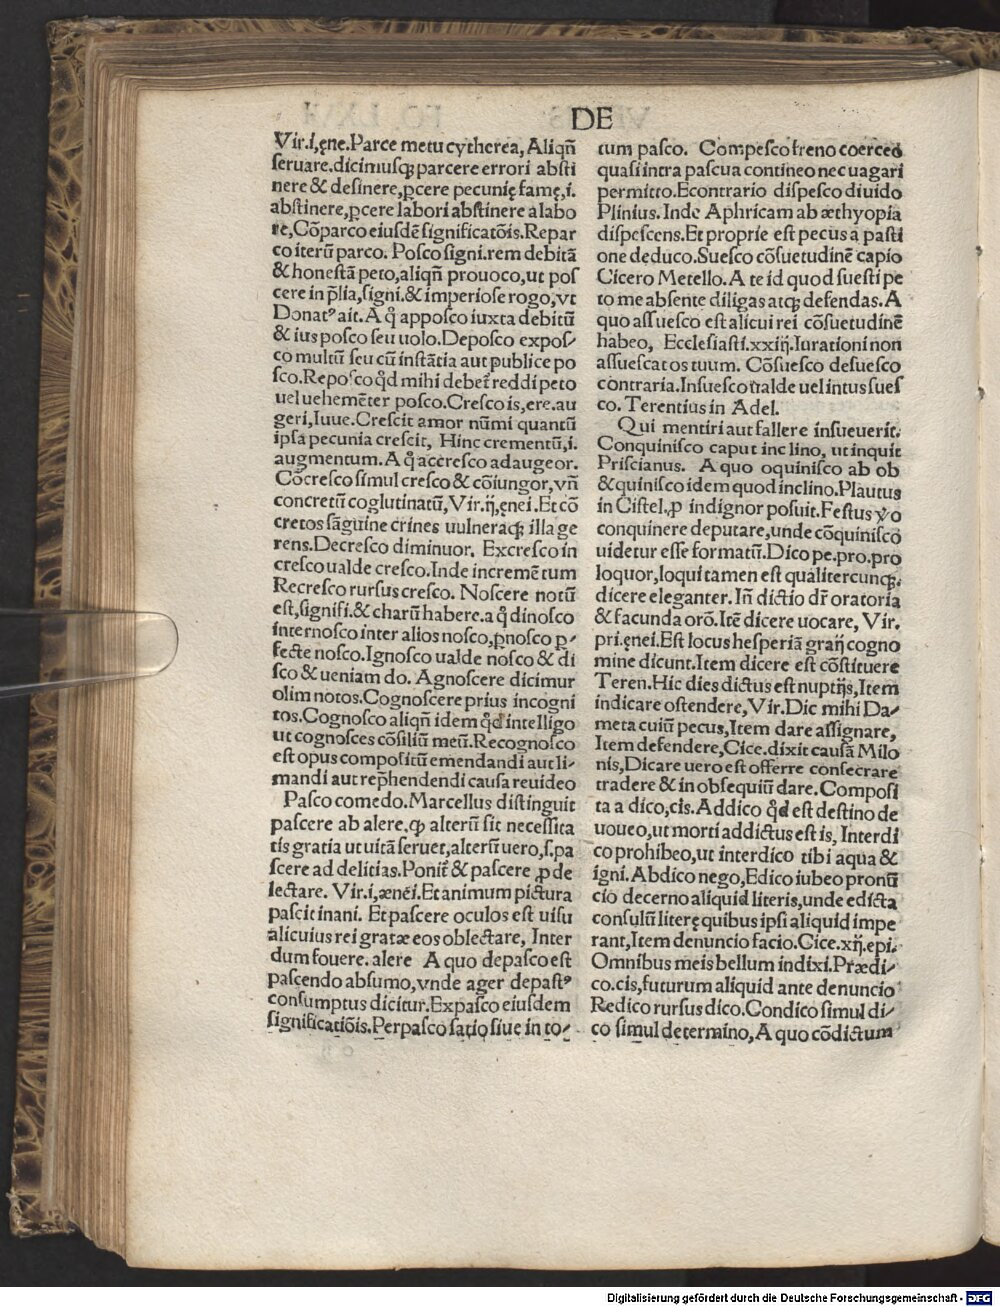 DE
Vir.i,ęne.Parce metu cytherea, Aliqñ
ſeruare.dicimuſqꝫ parcere errori abſti
nere & deſinere,ꝑcere pecunię famę,i.
abſtinere,ꝑcere labori abſtinere a labo
re,Cõparco eiuſdẽ significatõis.Repar
co iterũ parco. Poſco ſigni.rem debitã
& honeſtã peto,aliqñ prouoco,ut poſ
cere in p̃lia,ſigni.& imperioſe rogo,vt
Donatꝰ ait. A q̊ appoſco iuxta debitũ
& ius poſco ſeu uolo.Depoſco expoſ⸗
co multũ ſeu cũ inſtãtia aut publice po
ſco.Repoſco qd̓ mihi debet᷑ reddi peto
uel uehemẽter poſco.Creſco is,ere.au
geri,Iuue.Creſcit amor nũmi quantũ
ipſa pecunia creſcit, Hinc crementũ,i.
augmentum. A q̊ acereſco adaugeor.
Cõcreſco ſimul creſco & cõiungor,vñ
concretũ coglutinatũ, Vir.ij,ęnei.Et cõ
cretos ſãguine crines uulneraqꝫ illa ge
rens.Decreſco diminuor. Excreſco in
creſco ualde creſco.Inde incremẽtum
Recreſco rurſus creſco. Noſcere notũ
eſt,ſignifi.& charũ habere.a q̊ dinoſco
internoſco inter alios noſco,ꝑnoſco ꝑ⸗
fecte noſco.Ignoſco ualde noſco & di
ſco & ueniam do. Agnoſcere dicimur
olim notos.Cognoſcere prius incogni
tos.Cognoſco aliqñ idem qd̓ intelligo
ut cognoſces cõſiliũ meũ.Recognoſco
eſt opus compoſitũ emendandi aut li⸗
mandi aut rep̃hendendi cauſa reuideo
Paſco comedo.Marcellus diſtinguit
paſcere ab alere,qꝫ alterũ ſit neceſſita
tis gratia ut uitã ſeruet,alterũ uero,ſ.pa
ſcere ad delitias.Ponit᷑ & paſcere ꝓ de
lectare. Vir.i,ænei.Et animum pictura
paſcit inani. Et paſcere oculos eſt uiſu
alicuius rei gratæ eos oblectare, Inter
dum fouere. alere A quo depaſco eſt
paſcendo abſumo,vnde ager depaſtꝰ
conſumptus dicitur.Expaſco eiuſdem
ſignificatiõis.Perpaſco ſatio ſiue in to⸗
tum paſco. Compeſco freno coerceo
quaſi intra paſcua contineo nec uagari
permitto.Econtrario diſpeſco diuido
Plinius. Inde Aphricam ab æthyopia
diſpeſcens.Et proprie eſt pecus a paſti
one deduco.Sueſco cõſuetudinẽ capio
Cicero Metello. A te id quod ſueſti pe
to me abſente diligas atqꝫ defendas. A
quo aſſueſco eſt alicui rei cõſuetudinẽ
habeo, Eccleſiaſti.xxiij.Iurationi non
aſſueſcat os tuum. Cõſueſco deſueſco
contraria.Inſueſco ualde uel intus ſueſ
co. Terentius in Adel.
Qui mentiri aut fallere inſueuerit.
Conquiniſco caput inclino, ut inquit
Priſcianus. A quo oquiniſco ab ob
& quiniſco idem quod inclino.Plautus
in Ciſtel.ꝓ indignor poſuit.Feſtus
conquinere deputare,unde cõquiniſco
uidetur eſſe formatũ.Dico pe.pro.pro
loquor,loqui tamen eſt qualitercunqꝫ.
dicere eleganter. Iñ dictio dr̃ oratoria
& facunda orõ.Itẽ dicere uocare, Vir.
pri.ęnei.Eſt locus heſperiã graij cogno
mine dicunt.Item dicere eſt cõſtituere
Teren.Hic dies dictus eſt nuptijs,Item
indicare oſtendere, Vir.Dic mihi Da⸗
meta cuiũ pecus,Item dare aſſignare,
Item defendere,Cice.dixit cauſã Milo
nis,Dicare uero eſt offerre conſecrare
tradere & in obſequiũ dare.Compoſi
ta a dico,cis. Addico qd̓ eſt deſtino de
uoueo,ut morti addictus eſt is, Interdi
co prohibeo,ut interdico tibi aqua &
igni. Abdico nego,Edico iubeo pronũ
cio decerno aliquid literis,unde edicta
conſulũ literę quibus ipſi aliquid impe
rant,Item denuncio facio.Cice.xij.epi.
Omnibus meis bellum indixi.Prædi⸗
co.cis,futurum aliquid ante denuncio
Redico rurſus dico.Condico ſimul di⸗
co ſimul determino, A quo cõdictum
Digitalisierung gefördert durch die Deutsche Forschungsgemeinschaft - DFG